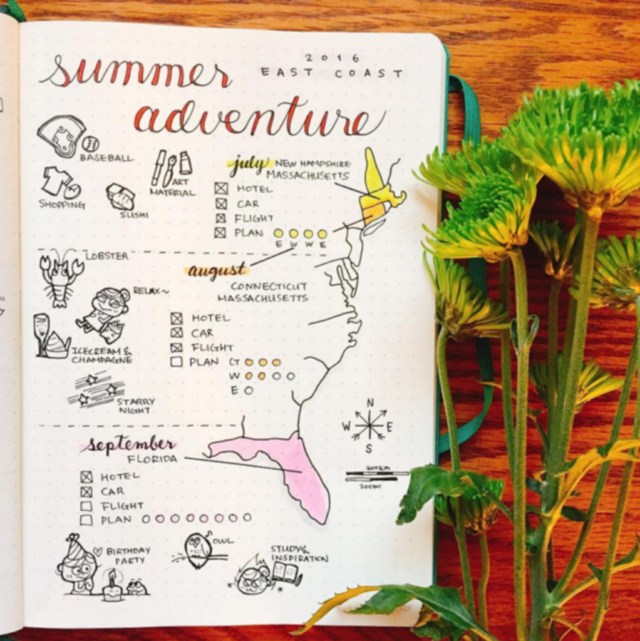 summer
adventure
2016
EAST COAST
BASEBALL
SHOPPING
SUSHI
ART
MATERIAL
july NEW HAMPSHIRE
MASSACHUSETTS
HOTEL
CAR
FLIGHT
PLAN
E W W E
LOBSTER
RELAX~
ICECREAM &
CHAMPAGNE
STARRY
NIGHT
august
CONNECTICUT
MASSACHUSETTS
HOTEL
CAR
FLIGHT
PLAN CT
W
E
N
W E
S
september
FLORIDA
HOTEL
CAR
FLIGHT
PLAN
BIRTHDAY
PARTY
OWL
STUDY &
INSPIRATION